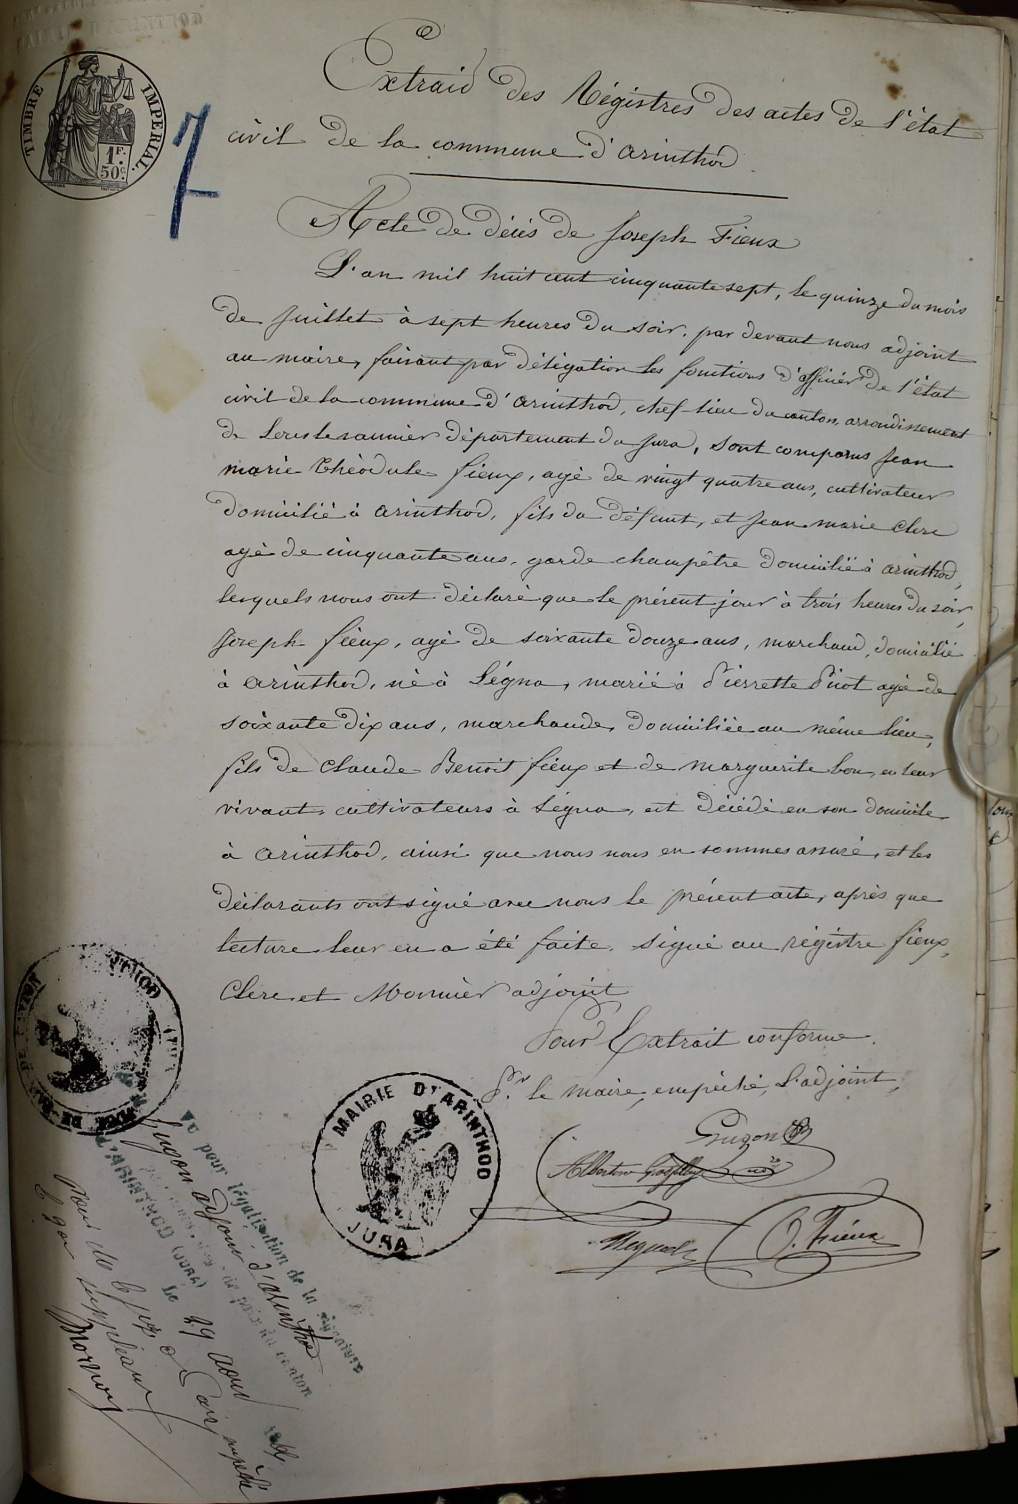 TIMBRE IMPERIAL.
1F.
50c.
7
Extrait des Régistres des actes de l'état
civil de la commune d'Arinthod
Acte de décés de Joseph Fieux
L'an mil huit cent cinquante sept, le quinze du mois
de Juillet à sept heures du soir, par devant nous adjoint
au maire, faisant par délégation les fonctions d'officier de l'état
civil de la commune d'Arinthod, chef lieu du canton, arrondissement
de Lons le saunier département du Jura, sont comparus Jean
marie Théodule fieux, agé de vingt quatre ans, cultivateur
domicilié à Arinthod, fils du défunt, et Jean marie Clerc
agé de cinquante ans, garde champêtre domicilié à Arinthod,
lesquels nous ont déclaré que le présent jour à trois heures du soir,
Joseph fieux, agé de soixante douze ans, marchand, domicilié
à Arinthod, né à Légna, marié à Pierrette Pirot agée de
soixante dix ans, marchande, domiciliée au même lieu,
fils de Claude Benoit fieux et de Marguerite bon, en leur
vivant, cultivateurs à Légna, est décédé en son domicile
à Arinthod, ainsi que nous nous en sommes assuré, et les
déclarants ont signé avec nous le présent acte, après que
lecture leur en a été faite. Signé au régistre fieux,
Clerc et Monnier adjoint
Pour Extrait conforme.
Pr. le maire, empêché, l'adjoint,
MAIRIE D'ARINTHOD
JURA
O. Fiéux
Vu pour légalisation de la signature
adjoint d'Arinthod
de paix du canton
D'ARINTHOD (JURA)
Le 29 Aout
suppléant